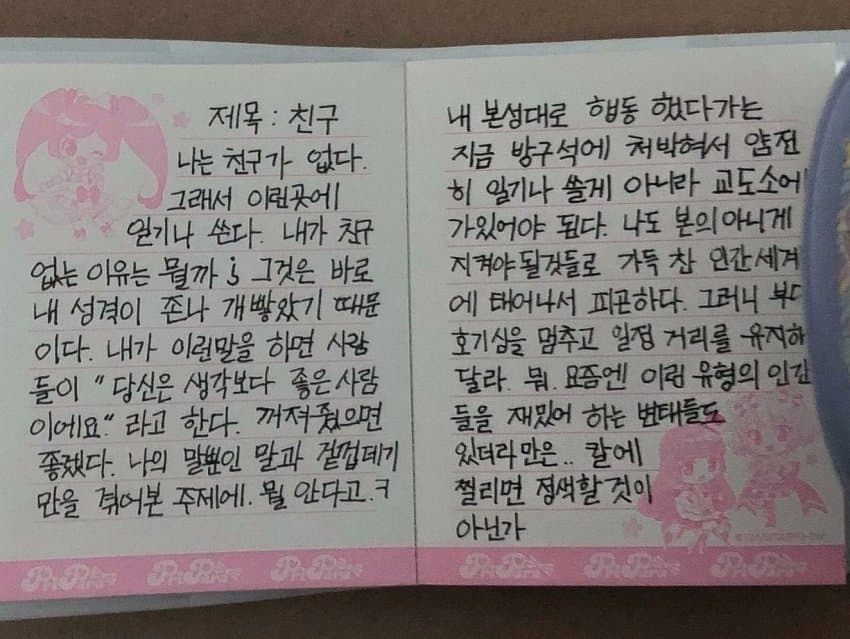 제목 : 친구
나는 친구가 없다.
그래서 이런곳에
일기나 쓴다. 내가 친구
없는 이유는 뭘까¿ 그것은 바로
내 성격이 존나 개빻았기 때문
이다. 내가 이런말을 하면 사람
들이 " 당신은 생각보다 좋은 사람
이에요." 라고 한다. 꺼져줬으면
좋겠다. 나의 말뿐인 말과 겉껍데기
만을 겪어본 주제에. 뭘 안다고.ㅋ
내 본성대로 행동 했다가는
지금 방구석에 처박혀서 얌전
히 일기나 쓸게 아니라 교도소에
가있어야 된다. 나도 본의아니게
지켜야될것들로 가득 찬 인간세계
에 태어나서 피곤하다. 그러니
호기심을 멈추고 일정 거리를 유지하
달라. 뭐. 요즘엔 이런 유형의 인간
들을 재밌어 하는 변태들도
있더라만은.. 칼에
찔리면 정색할것이
아닌가
PriPara PriPara PriPara
PriPara PriPara PriPara